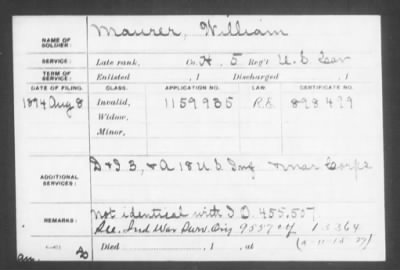 NAME OF SOLDIER: Maurer, William
SERVICE: Late rank, Co. H, 5 Reg't U.S. Cav
TERM OF SERVICE: Enlisted , 1 Discharged , 1
DATE OF FILING. CLASS. APPLICATION NO. LAW. CERTIFICATE NO.
1894 Aug 8 Invalid, 1159935 R.S. 898499
Widow,
Minor,
ADDITIONAL SERVICES: D & I 3, & A 18 U.S. Inf & Mar Corps
REMARKS: Not identical with I O. 455.557
See. Ind War Surv. Orig 9557 of 13364
Died , 1 , at (4-11-15-27)